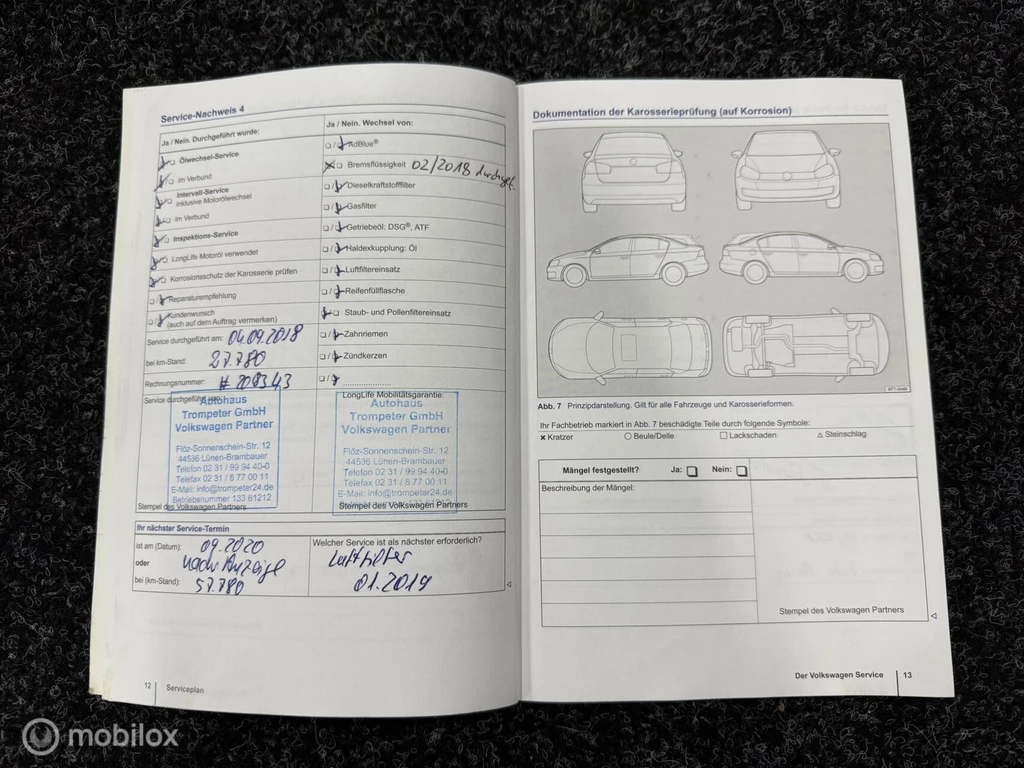 Service-Nachweis 4
Ja / Nein. Durchgeführt wurde:
Ölwechsel-Service
im Verbund
Intervall-Service
inklusive Motorölwechsel
im Verbund
Inspektions-Service
LongLife Motoröl verwendet
Korrosionsschutz der Karosserie prüfen
Reparaturempfehlung
Kundenwunsch
(auch auf dem Auftrag vermerken)
Service durchgeführt am: 04.09.2018
bei km-Stand: 27.780
Rechnungsnummer:
Service durchgeführt von:
Autohaus
Trompeter GmbH
Volkswagen Partner
Flöz-Sonnenschein-Str. 12
44536 Lünen-Brambauer
Telefon 02 31 / 99 94 40-0
Telefax 02 31 / 8 77 00 11
E-Mail: info@trompeter24.de
Betriebsnummer 133 61212
Stempel des Volkswagen Partners
Ja / Nein. Wechsel von:
AdBlue®
Bremsflüssigkeit 02/2018
Dieselkraftstofffilter
Gasfilter
Getriebeöl: DSG®, ATF
Haldexkupplung: Öl
Luftfiltereinsatz
Reifenfüllflasche
Staub- und Pollenfiltereinsatz
Zahnriemen
Zündkerzen
LongLife Mobilitätsgarantie:
Autohaus
Trompeter GmbH
Volkswagen Partner
Flöz-Sonnenschein-Str. 12
44536 Lünen-Brambauer
Telefon 02 31 / 99 94 40-0
Telefax 02 31 / 8 77 00 11
E-Mail: info@trompeter24.de
133 61212
Stempel des Volkswagen Partners
Ihr nächster Service-Termin
ist am (Datum): 09.2020
oder nach Anzeige
bei (km-Stand): 57.780
Welcher Service ist als nächster erforderlich?
Luftfilter
01.2019
12 Serviceplan
Dokumentation der Karosserieprüfung (auf Korrosion)
Abb. 7 Prinzipdarstellung. Gilt für alle Fahrzeuge und Karosserieformen.
Ihr Fachbetrieb markiert in Abb. 7 beschädigte Teile durch folgende Symbole:
Kratzer Beule/Delle Lackschaden Steinschlag
Mängel festgestellt? Ja: Nein:
Beschreibung der Mängel:
Stempel des Volkswagen Partners
Der Volkswagen Service 13
mobilox